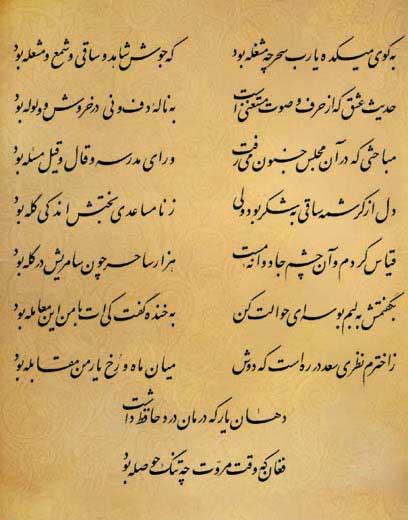 به کوی میکده یارب سحر چه مشغله بود که جوش شاهد و ساقی و شمع و مشعله بود
حدیث عشق که از حرف و صوت مستغنی است به ناله دف و نی در خروش و ولوله بود
مباحثی که در آن مجلس جنون می رفت ورای مدرسه و قال و قیل مسئله بود
دل از کرشمه ساقی به شکر بود ولی ز نامساعدی بختش اندکی گله بود
قیاس کردم و آن چشم جادوانه مست هزار ساحر چون سامریش در گله بود
بگفتمش به لبم بوسه ای حوالت کن به خنده گفت کی ات با من این معامله بود
ز اخترم نظری سعد در ره است که دوش میان ماه و رخ یار من مقابله بود
دهان یار که درمان درد حافظ داشت
فغان که وقت مروت چه تنگ حوصله بود